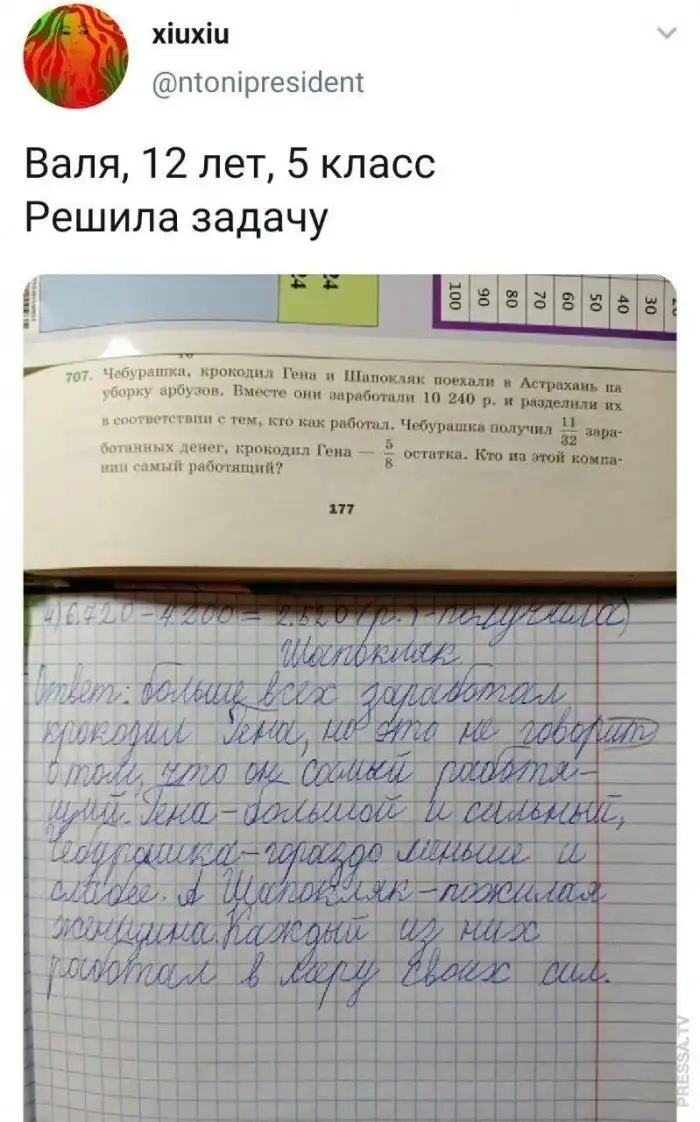 xiuxiu
@ntonipresident
Валя, 12 лет, 5 класс
Решила задачу
24
24
100
90
80
70
60
50
40
30
707. Чебурашка, крокодил Гена и Шапокляк поехали в Астрахань на
уборку арбузов. Вместе они заработали 10 240 р. и разделили их
в соответствии с тем, кто как работал. Чебурашка получил 11/32 зара-
ботанных денег, крокодил Гена — 5/8 остатка. Кто из этой компа-
нии самый работящий?
177
4) 6.720 - 4.200 = 2.520 (р.) - получила
Шапокляк
Ответ: больше всех заработал
крокодил Гена, но это не говорит
о том, что он самый работя-
щий. Гена - большой и сильный,
Чебурашка - гораздо меньше и
слабее. А Шапокляк - пожилая
женщина. Каждый из них
работал в меру своих сил.
PRESSA.TV